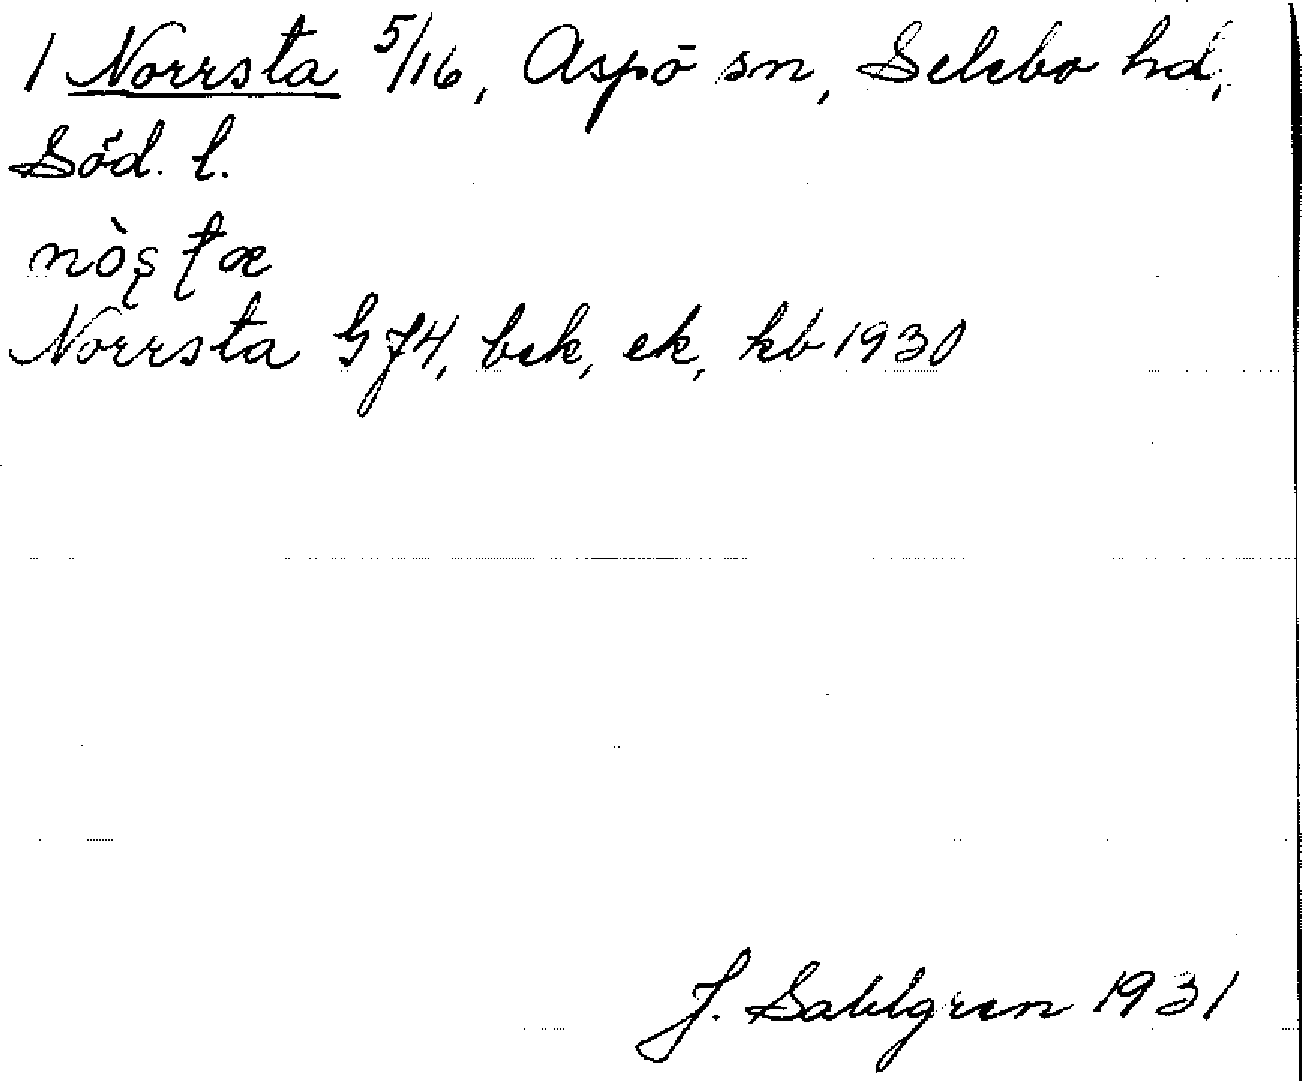 1 Norrsta 5/16, Aspö sn, Selebo hd,
Söd. l.
nòʂʈæ
Norrsta GJ4, bek, ek, kb 1930
J. Sahlgren 1931